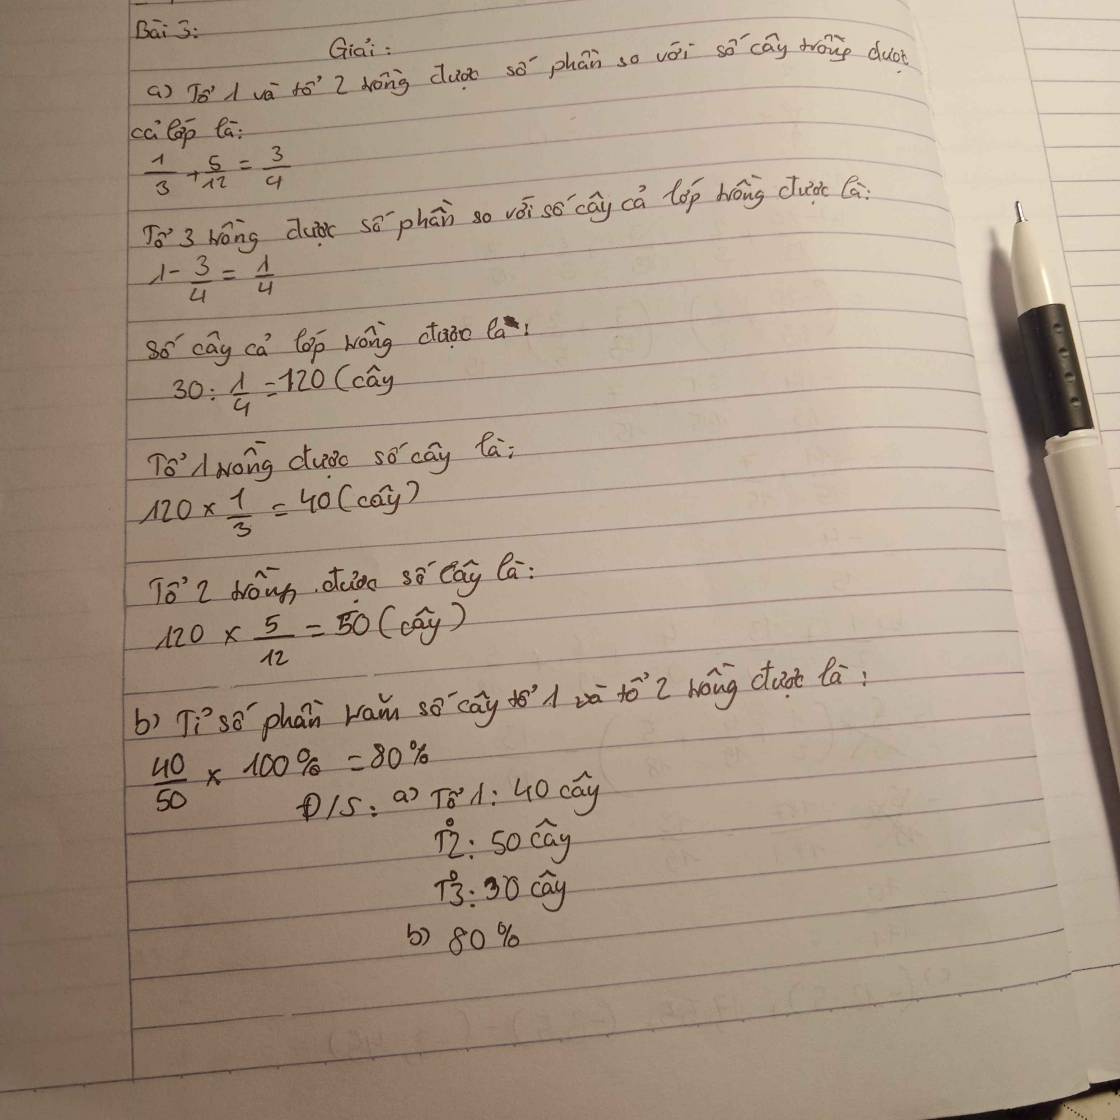 Bài 3:
Giải:
a) Tổ 1 và tổ 2 trồng được số phần so với số cây trồng được
cả lớp là:
1/3 + 5/12 = 3/4
Tổ 3 trồng được số phần so với số cây cả lớp trồng được là:
1 - 3/4 = 1/4
Số cây cả lớp trồng được là:
30 : 1/4 = 120 (cây
Tổ 1 trồng được số cây là:
120 × 1/3 = 40 (cây)
Tổ 2 trồng được số cây là:
120 × 5/12 = 50 (cây)
b) Tỉ số phần trăm số cây tổ 1 và tổ 2 trồng được là:
40/50 × 100% = 80%
Đ/S: a) Tổ 1: 40 cây
T2: 50 cây
T3: 30 cây
b) 80%